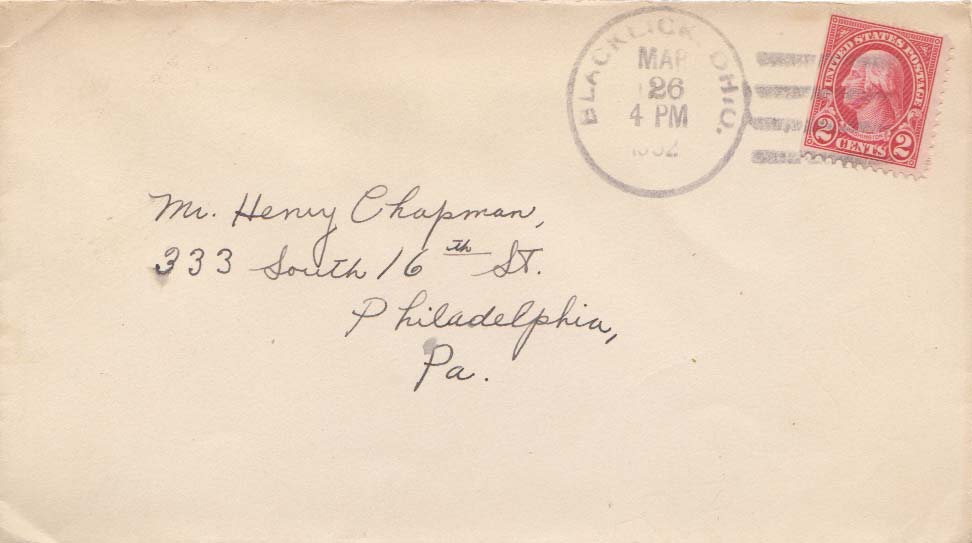 BLACKLICK, OHIO.
MAR
26
4 PM
1932
UNITED STATES POSTAGE
WASHINGTON
2 CENTS 2
Mr. Henry Chapman,
333 South 16th St.
Philadelphia,
Pa.